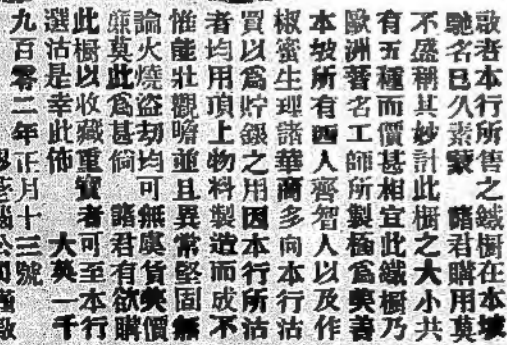 啟者本行所售之鐵橱在本坡
馳名已久素蒙 諸君購用莫
不盛稱其妙計此橱之大小共
有五種而價甚相宜此鐵橱乃
歐洲著名工師所製極為美善
本坡所有西人齊智人以及作
椒蜜生理諸華商多向本行沽
買以為貯銀之用因本行所沽
者均用頂上物料製造而成不
惟能壯觀瞻並且異常堅固無
論火燒盜刼均可無虞貨美價
廉莫此為甚倘 諸君有欲購
此橱以收藏重寶者可至本行
選沽是幸此佈 大英一千
九百零二年正月十三號